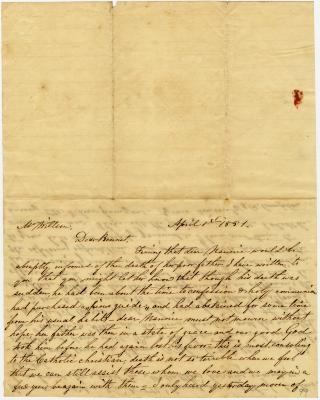 Mt Williams April 1st 1851.
Dear
Fearing that dear Nannie would be
abruptly informed of the death of her father I have written to
you that you might let her know that though his death was
sudden he had been about this time to confession & holy communion
had purchased a pious guide, and had abstained for some time
from his usual he hill dear Nannie must not mourn without
hope her father was then in a state of grace and our good God
took him before he had again lost it. this is most consoling
to the Catholic christian, death is not so terrible when we feel
that we can still assist those whom we love and we may in a
few years reagain with them - I only heard yesterday